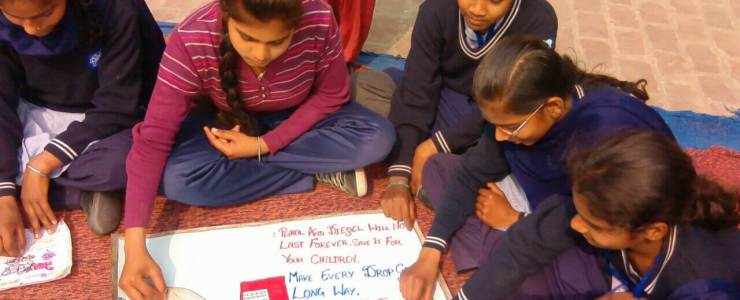 : PETROL AND DIESEL WILL NO
LAST FOREVER. SAVE IT FOR
YOUR CHILDREN.
MAKE EVERY DROP G
LONG WAY.